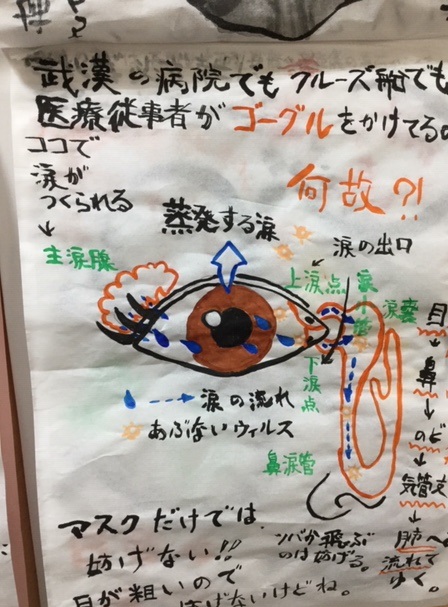 武漢の病院でもクルーズ船でも
医療従事者がゴーグルをかけてるの
何故?!
ココで
涙が
つくられる
主涙腺
蒸発する涙
涙の出口
上涙点
涙小管
涙嚢
下涙点
鼻涙管
涙の流れ
あぶないウィルス
目
鼻
のど
気管支
肺へ
流れて
ゆく。
マスクだけでは
妨げない!!
ツバが飛ぶ
のは妨げる。
目が粗いので
妨げないけどね。